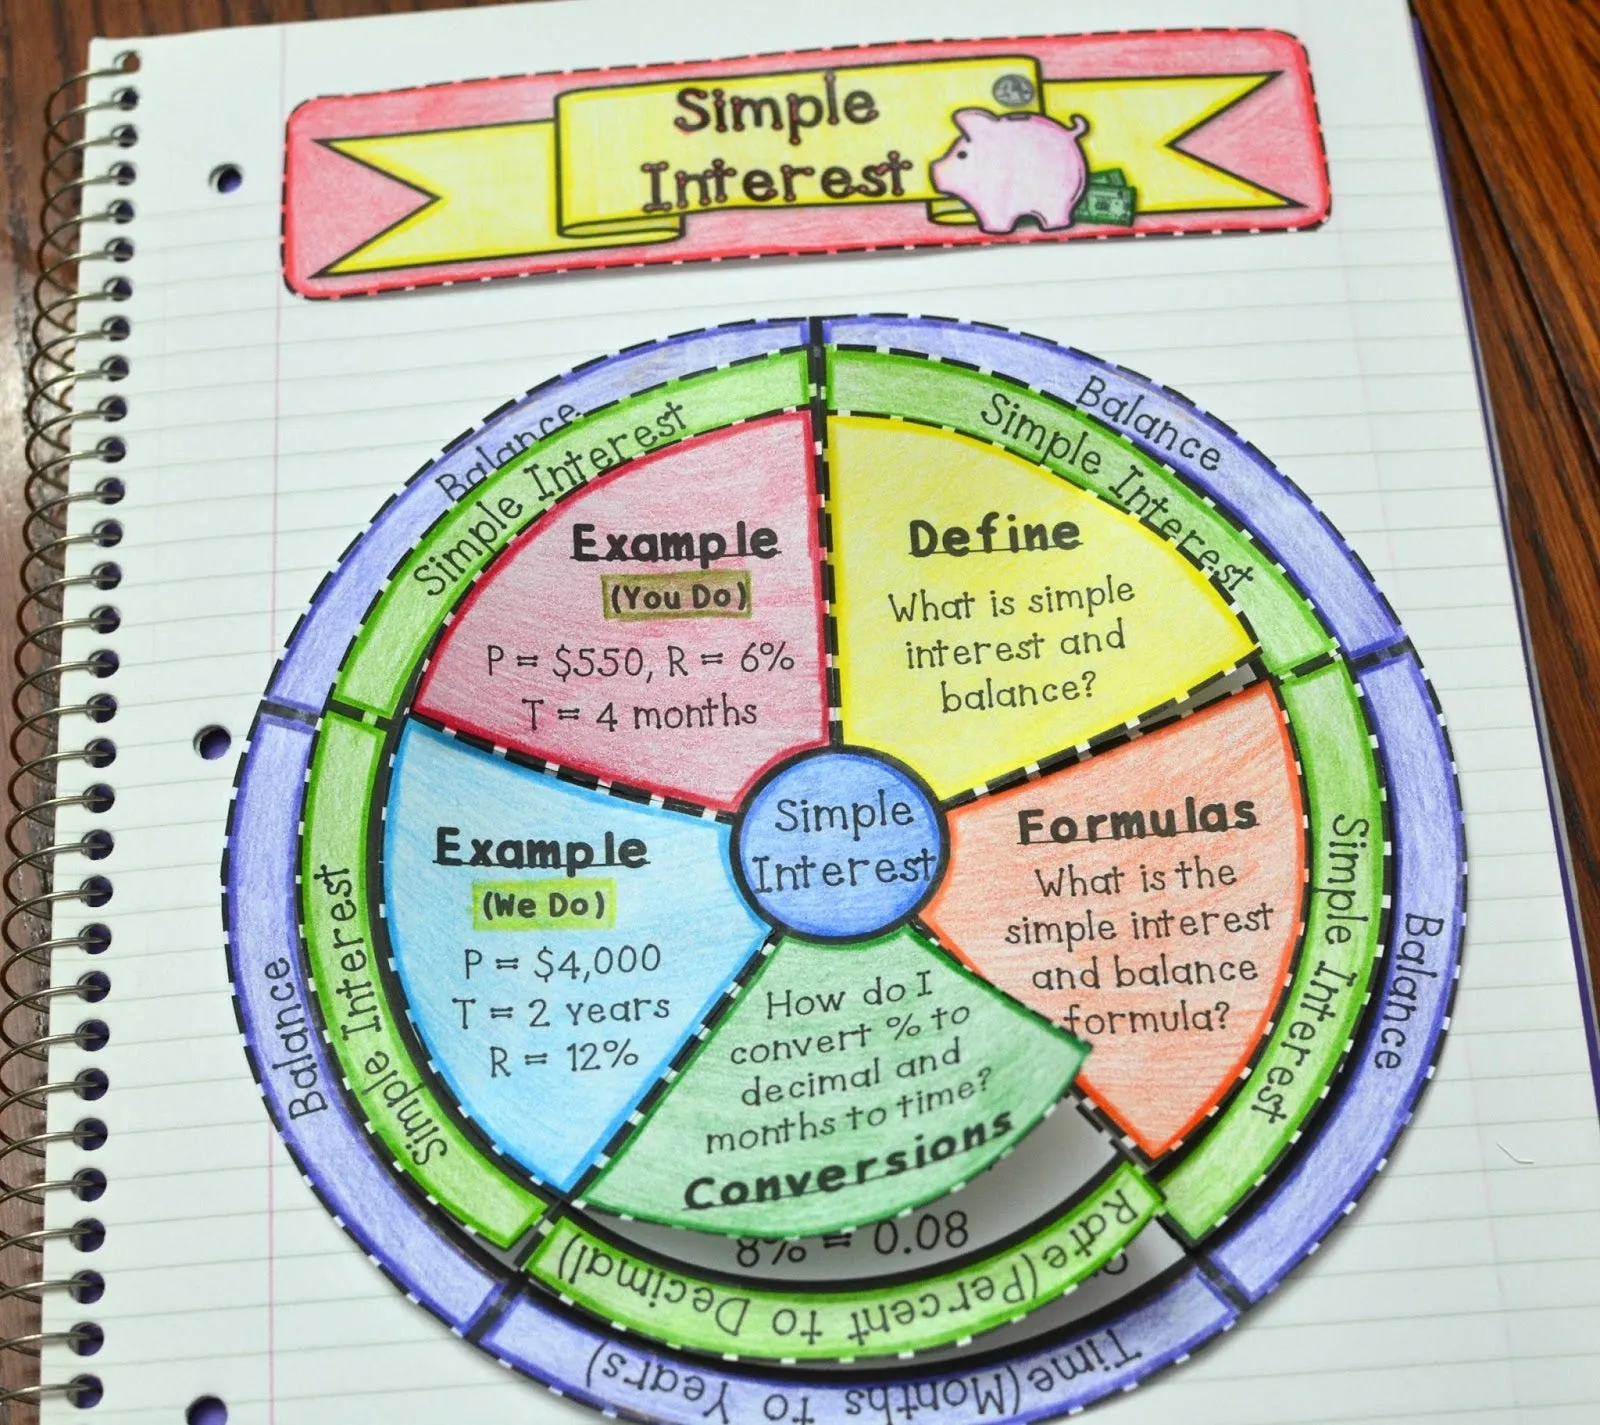 Simple
Interest
Balance
Simple Interest
Balance
Simple Interest
Example
(You Do)
P = $550, R = 6%
T = 4 months
Define
What is simple
interest and
balance?
Example
(We Do)
P = $4,000
T = 2 years
R = 12%
Simple
Interest
Formulas
What is the
simple interest
and balance
formula?
Balance
Simple Interest
Simple Interest
Balance
How do I
convert % to
decimal and
months to time?
Conversions
8% = 0.08
Rate(Percent to Decimal)
Time(Months to Years)